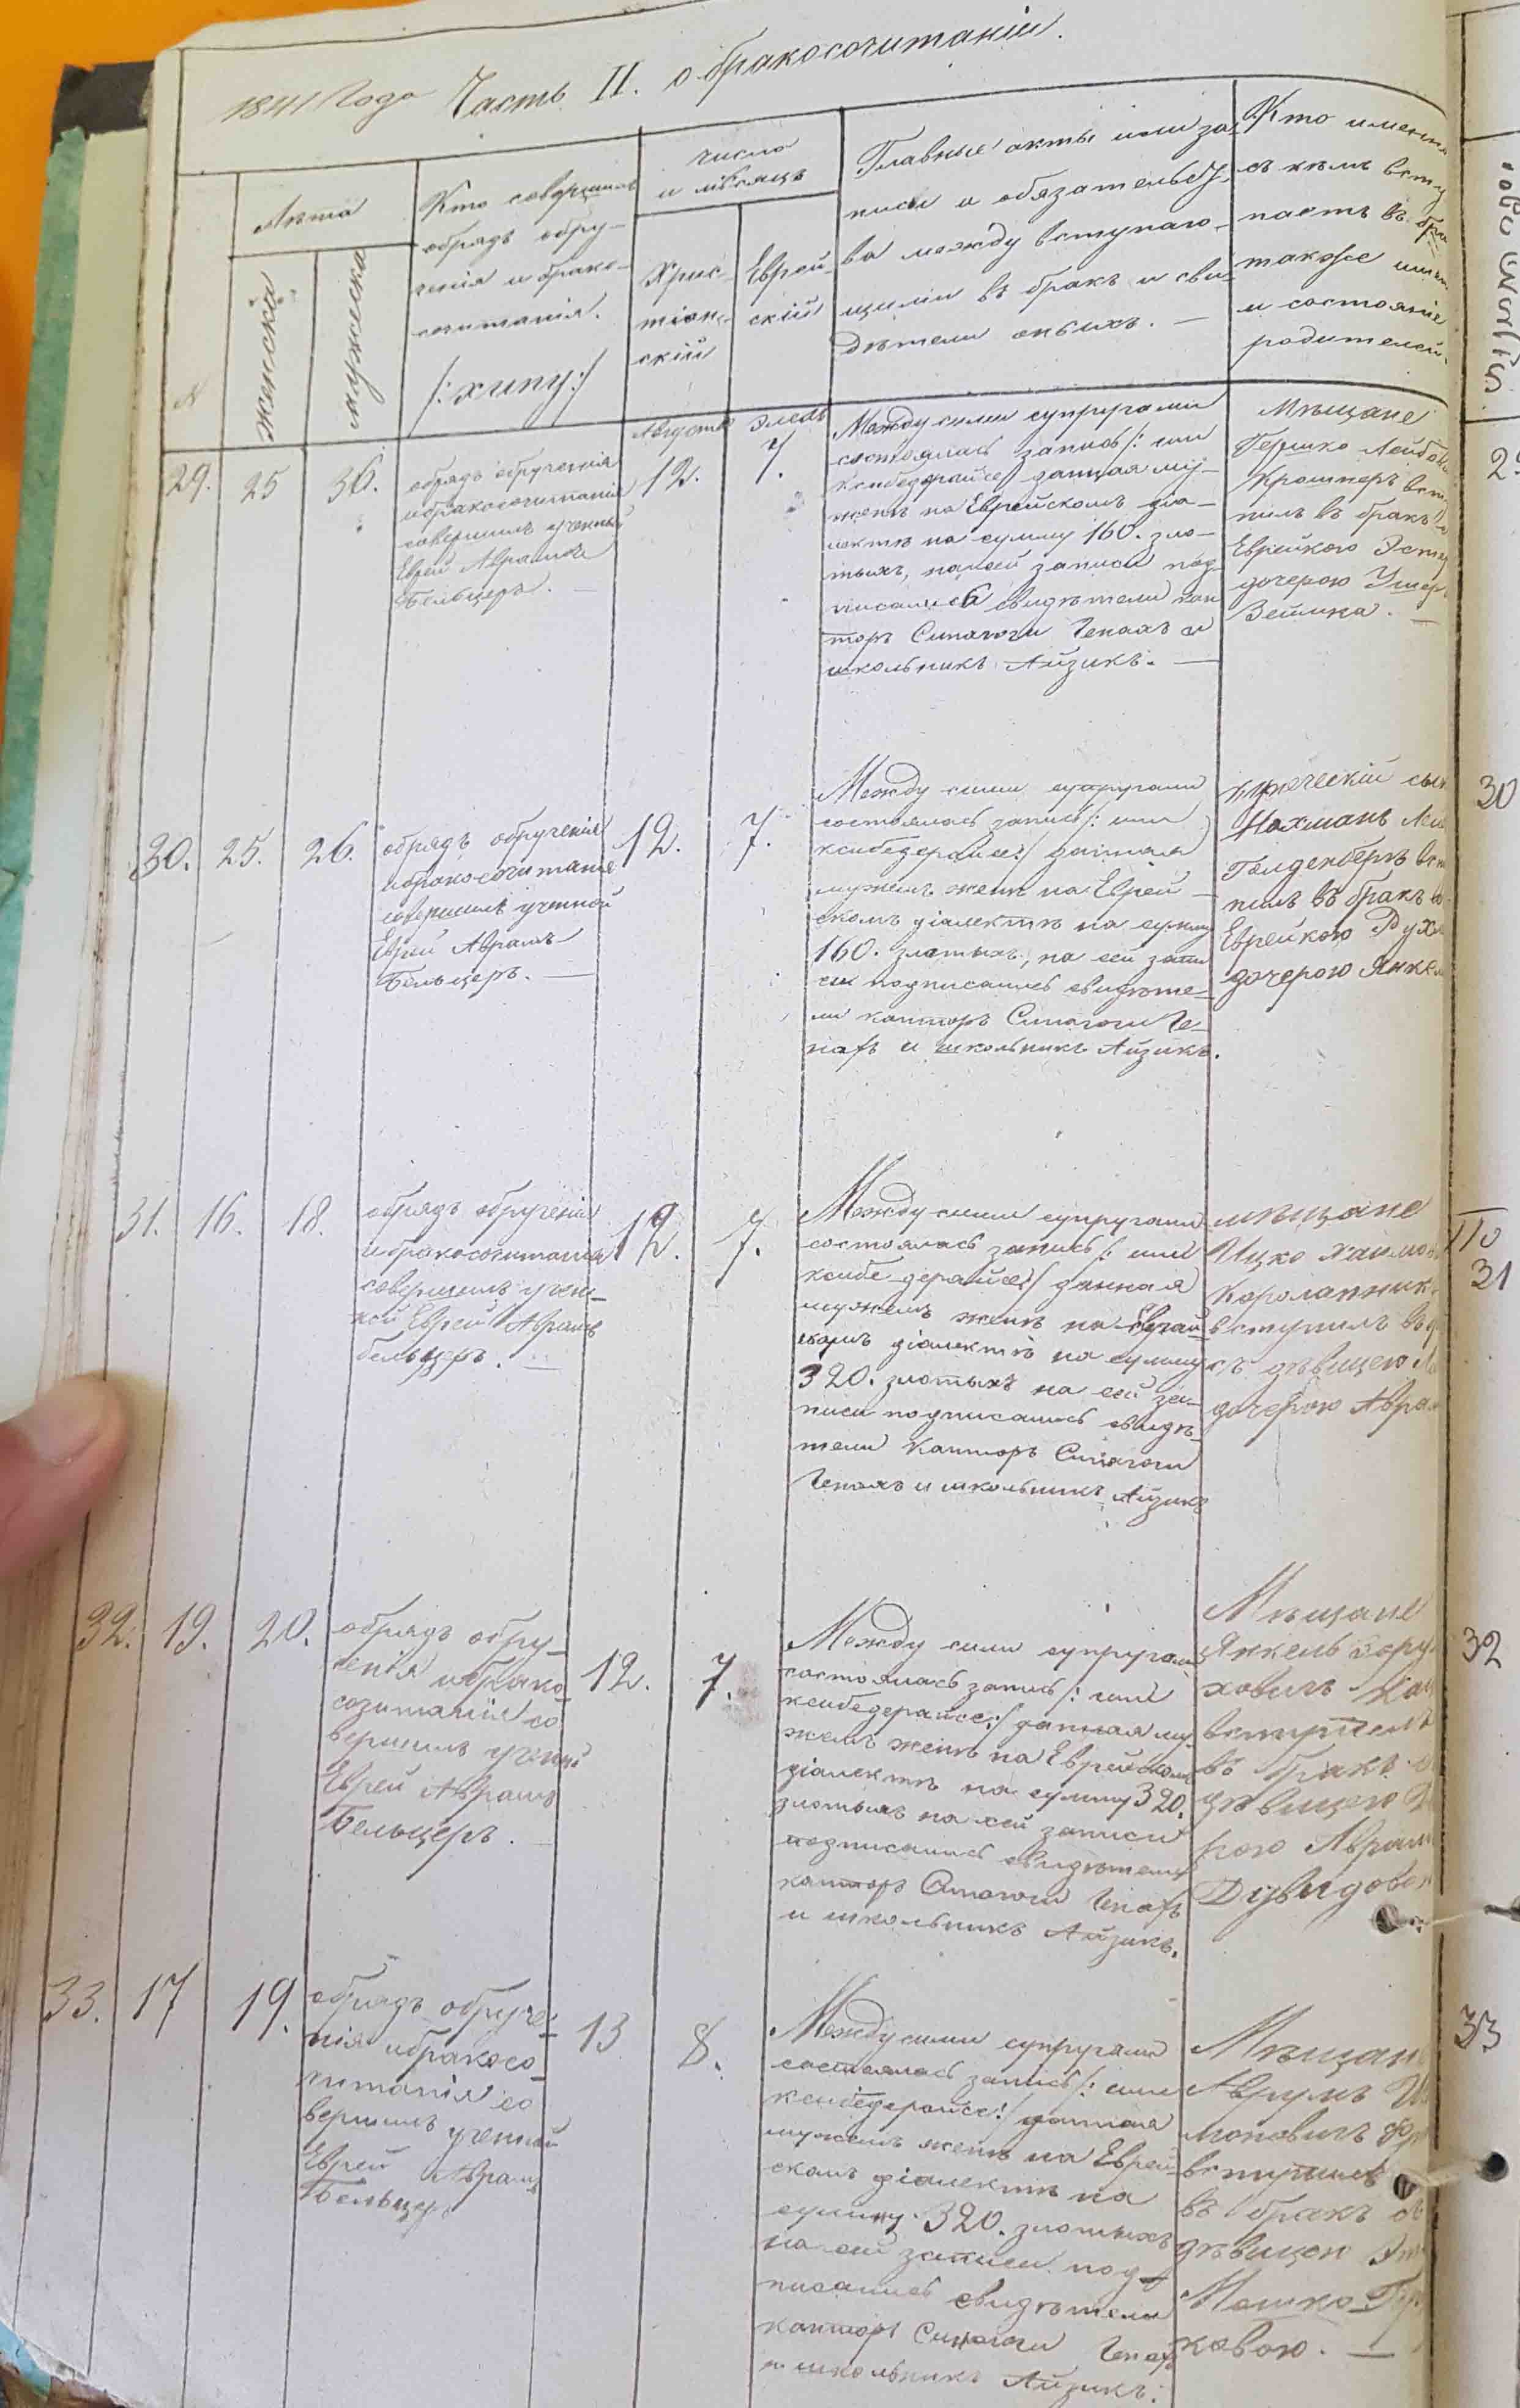 1841 Года Часть II. о бракосочитаніи.
№
Лѣта
женская
мужеская
Кто совершилъ
обрядъ обру-
ченія и брако-
сочитанія.
/:хипу:/
число
и мѣсяцъ
Хрис-
тіан-
скій
Еврей-
скій
Главные акты или за-
писи и обязательст-
ва между вступаю-
щими въ бракъ и сви-
дѣтели оныхъ. —
Кто именно
съ кѣмъ всту
паетъ въ бра
также имя
и состояніе
родителей.
29.
25
36.
обрядъ обрученія
и бракосочитанія
совершилъ ученый
Еврей Аврамъ
Бельцеръ. —
Августъ
12.
Элелъ
7.
Между сими супругами
состоялась запись /: или
ксибедерайсе :/ данная му-
женѣ на Еврейскомъ діа-
лектѣ на сумму 160. зло-
тыхъ, на сей записи под-
писались свидѣтели кан
торъ Синагоги Ченахъ и
школьникъ Айзикъ. —
Мѣщане
Гершко Лейбов
Крашнеръ всту
пилъ въ бракъ со
Еврейкою Эстер
дочерою Ушер
Зейлика. —
30.
25.
26.
обрядъ обрученія
и бракосочитанія
совершилъ ученой
Еврей Аврамъ
Бельцеръ. —
12.
7.
Между сими супругами
состоялась запись /: или
ксибедерайсе :/ данная
мужемъ женѣ на Еврей-
скомъ діалектѣ на сумму
160. златыхъ, на сей запи
си подписались свидѣте-
ли канторъ Синагоги Че-
нахъ и школьникъ Айзикъ.
купеческій сын
Нахманъ Лей
Голденбергъ вст
пилъ въ бракъ со
Еврейкою Рухл
дочерою Янкел
30
31.
16.
18.
обрядъ обрученія
и бракосочитанія
совершилъ учен-
ной Еврей Аврамъ
бельцеръ. —
12.
7.
Между сими супругами
состоялась запись /: или
ксибедерайсе :/ данная
мужемъ женѣ на Еврей
скомъ діалектѣ на сумму
320. злотыхъ на сей за-
писи подписались свидѣ-
тели Канторъ Синагоги
Ченахъ и школьникъ Айзикъ
мѣщане
Ицко Хаимов
Каролапник
вступилъ въ
съ дѣвицею
дочерою Авра
31
32.
19.
20.
обрядъ обру-
ченія и брако-
созитанія со
вершилъ ученый
Еврей Аврамъ
Бельцеръ. —
12.
7.
Между сими супругами
состоялась запись /: или
ксибедерайсе :/ данная му-
жемъ женѣ на Еврейскомъ
діалектѣ на сумму 320.
злотыхъ на сей записи
подписались свидѣтели
канторъ Синагоги Ченахъ
и школьникъ Айзикъ.
Мѣщане
Янкель Бору
ховичъ
вступилъ
въ бракъ
дѣвицею
рою Аврам
Дувидов
32
33.
17
19.
обрядъ обруче-
нія и бракосо-
читанія со
вершилъ ученой
Еврей Аврамъ
Бельцеръ
13
8.
Между сими супругами
состоялась запись /: или
ксибедерайсе :/ данная
мужемъ женѣ на Еврей-
скомъ діалектѣ на
сумму 320. злотыхъ
на сей записи под-
писались свидѣтели
канторъ Синагоги Ченахъ
и школьникъ Айзикъ.
Мѣщан
Аврумъ
моновичъ
вступилъ
въ бракъ
дѣвицею
Мошко
ковою. —
33